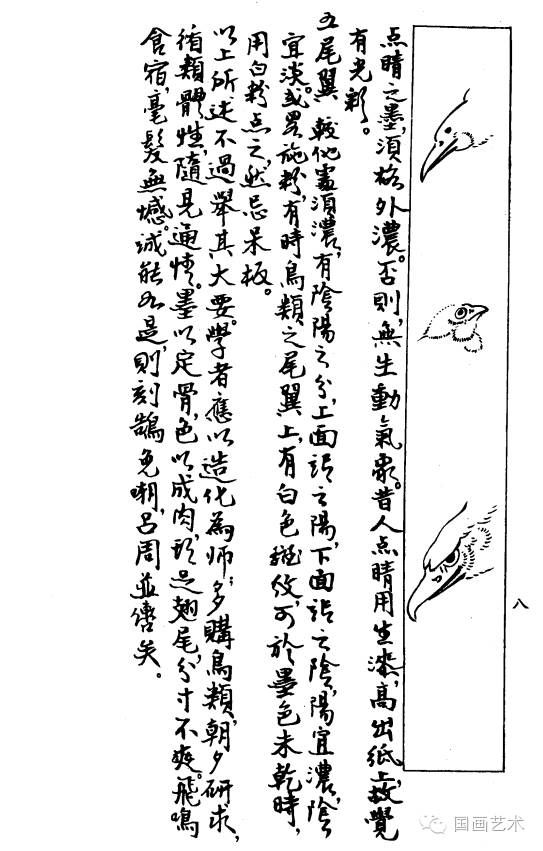 八
点睛之墨,須格外濃。否則,無生動氣象。昔人点睛用生漆,高出紙上,故覺
有光彩。
五尾翼 較他處須濃,有陰陽之分,上面謂之陽,下面謂之陰,陽宜濃,陰
宜淡。或畧施粉,有時鳥類之尾翼上,有白色斑紋,可於墨色未乾時,
用白粉点之,然忌呆板。
以上所述不過舉其大要。學者應以造化為师;多購鳥類,朝夕研求,
循類體性,隨見通情。墨以定骨,色以成肉,頭足翅尾,分寸不爽。飛鳴
食宿,毫髮無憾。誠能如是,則刻鵠免嘲,呂周並儔矣。
国画艺术